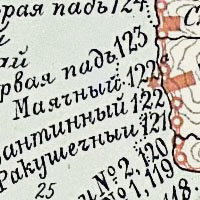 орая падь 124
й
ай
рвая падь 123
Маячный 122а
антинный 122
Ракушечный 121
и № 2, 120
№ 1, 119
118.
25